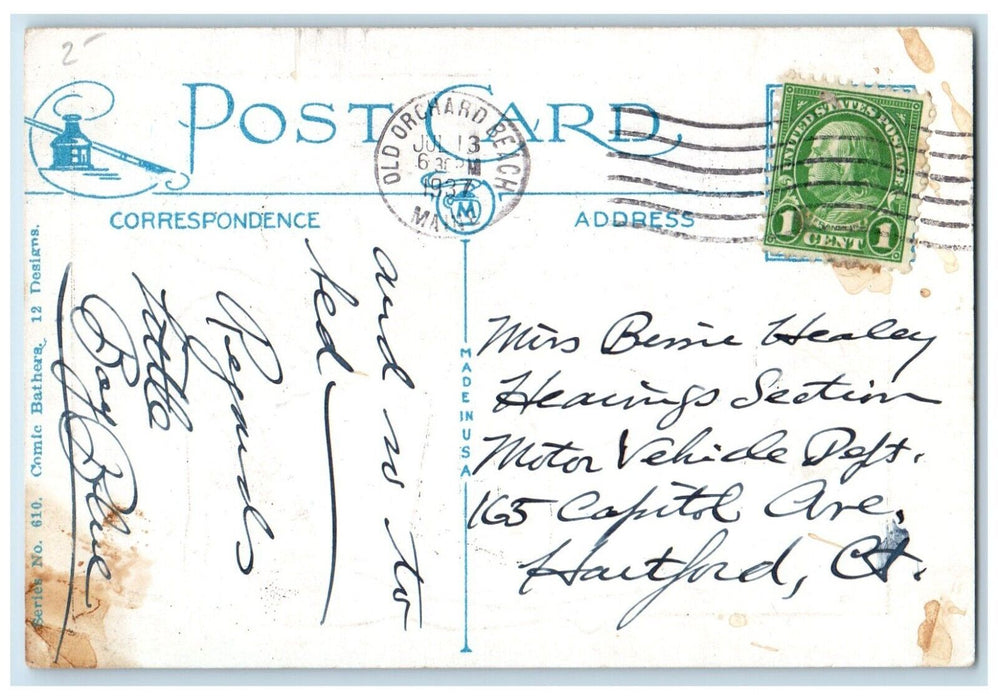 2-
POST CARD
OLD ORCHARD BEACH
JUL 13
6 30 PM
1937
MAINE
UNITED STATES POSTAGE
1 CENT 1
CORRESPONDENCE
ADDRESS
M
and so to
bed
Regards
Little
Boy Blue
MADE IN USA
Miss Bessie Healey
Hearings Section
Motor Vehicle Dept.
165 Capitol Ave.
Hartford, Ct.
Series No. 610. Comic Bathers. 12 Designs.